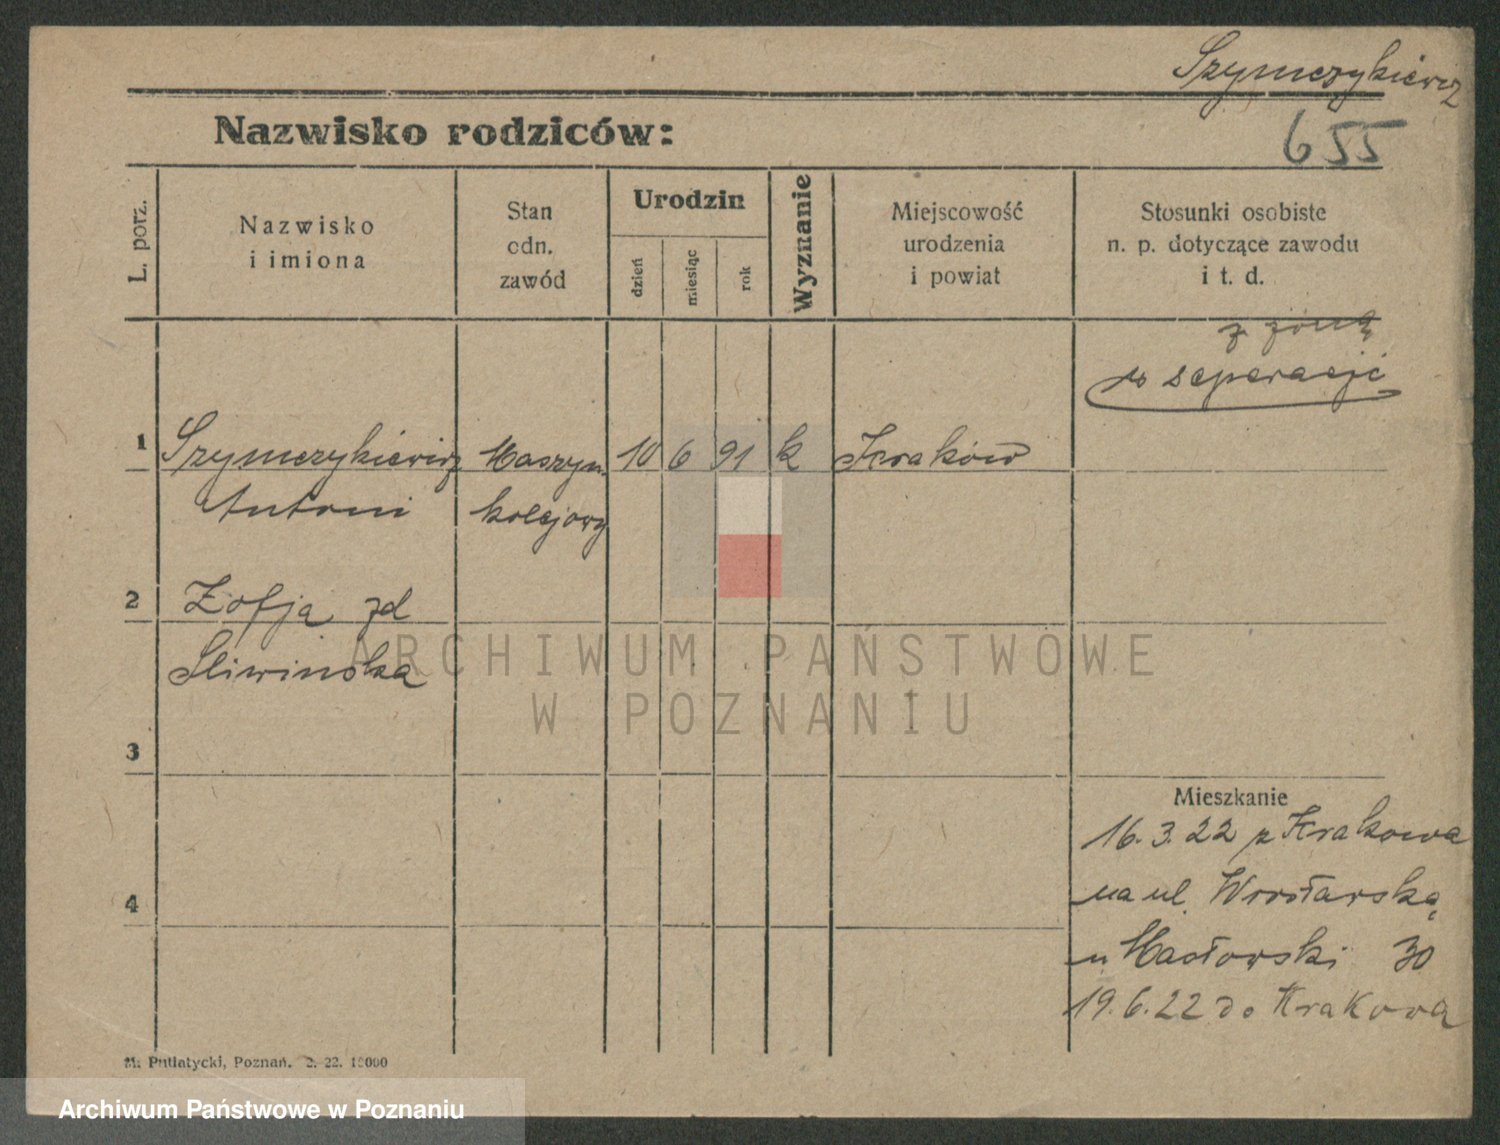 Szymczykiewicz
655
Nazwisko rodziców:
L. porz.
Nazwisko
i imiona
Stan
odn.
zawód
Urodzin
dzień
miesiąc
rok
Wyznanie
Miejscowość
urodzenia
i powiat
Stosunki osobiste
n. p. dotyczące zawodu
i t. d.
z żoną
w separacji
1 Szymczykiewicz Maszyn. 10 6 91 k Kraków
Antoni kolejowy
2 Zofja zd
Sliwinska
ARCHIWUM PAŃSTWOWE
W POZNANIU
3
Mieszkanie
16.3.22 z Krakowa
4
na ul. Wrocławską
u Masłowski 30
19.6.22 do Krakowa
M. Putiatycki, Poznań. 2. 22. 15000
Archiwum Państwowe w Poznaniu